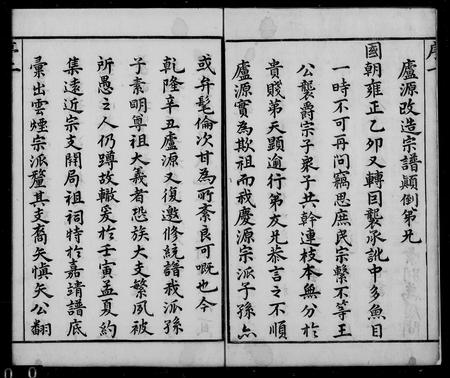 盧源改造宗譜顛倒弟兄
國朝雍正乙卯又轉囙襲承訛中多魚目
一時不可再問竊思庶民宗繫不等王
公襲爵宗子衆子共幹連枝本無分於
貴賤弟天顯逾行第友兄恭言之不順
盧源實為欺祖而我慶源宗派子孫亦
或弁髦倫次甘為所紊良可嘅也今
乾隆辛丑盧源又復邀修統譜我派孫
子素明尊祖大義者恐族大支繁夙被
所愚之人仍蹲故轍爰於壬寅孟夏約
集遠近宗支開局祖祠特於嘉靖譜底
彙出雲煙宗派釐其支裔矢慎矢公翻
序一
序二